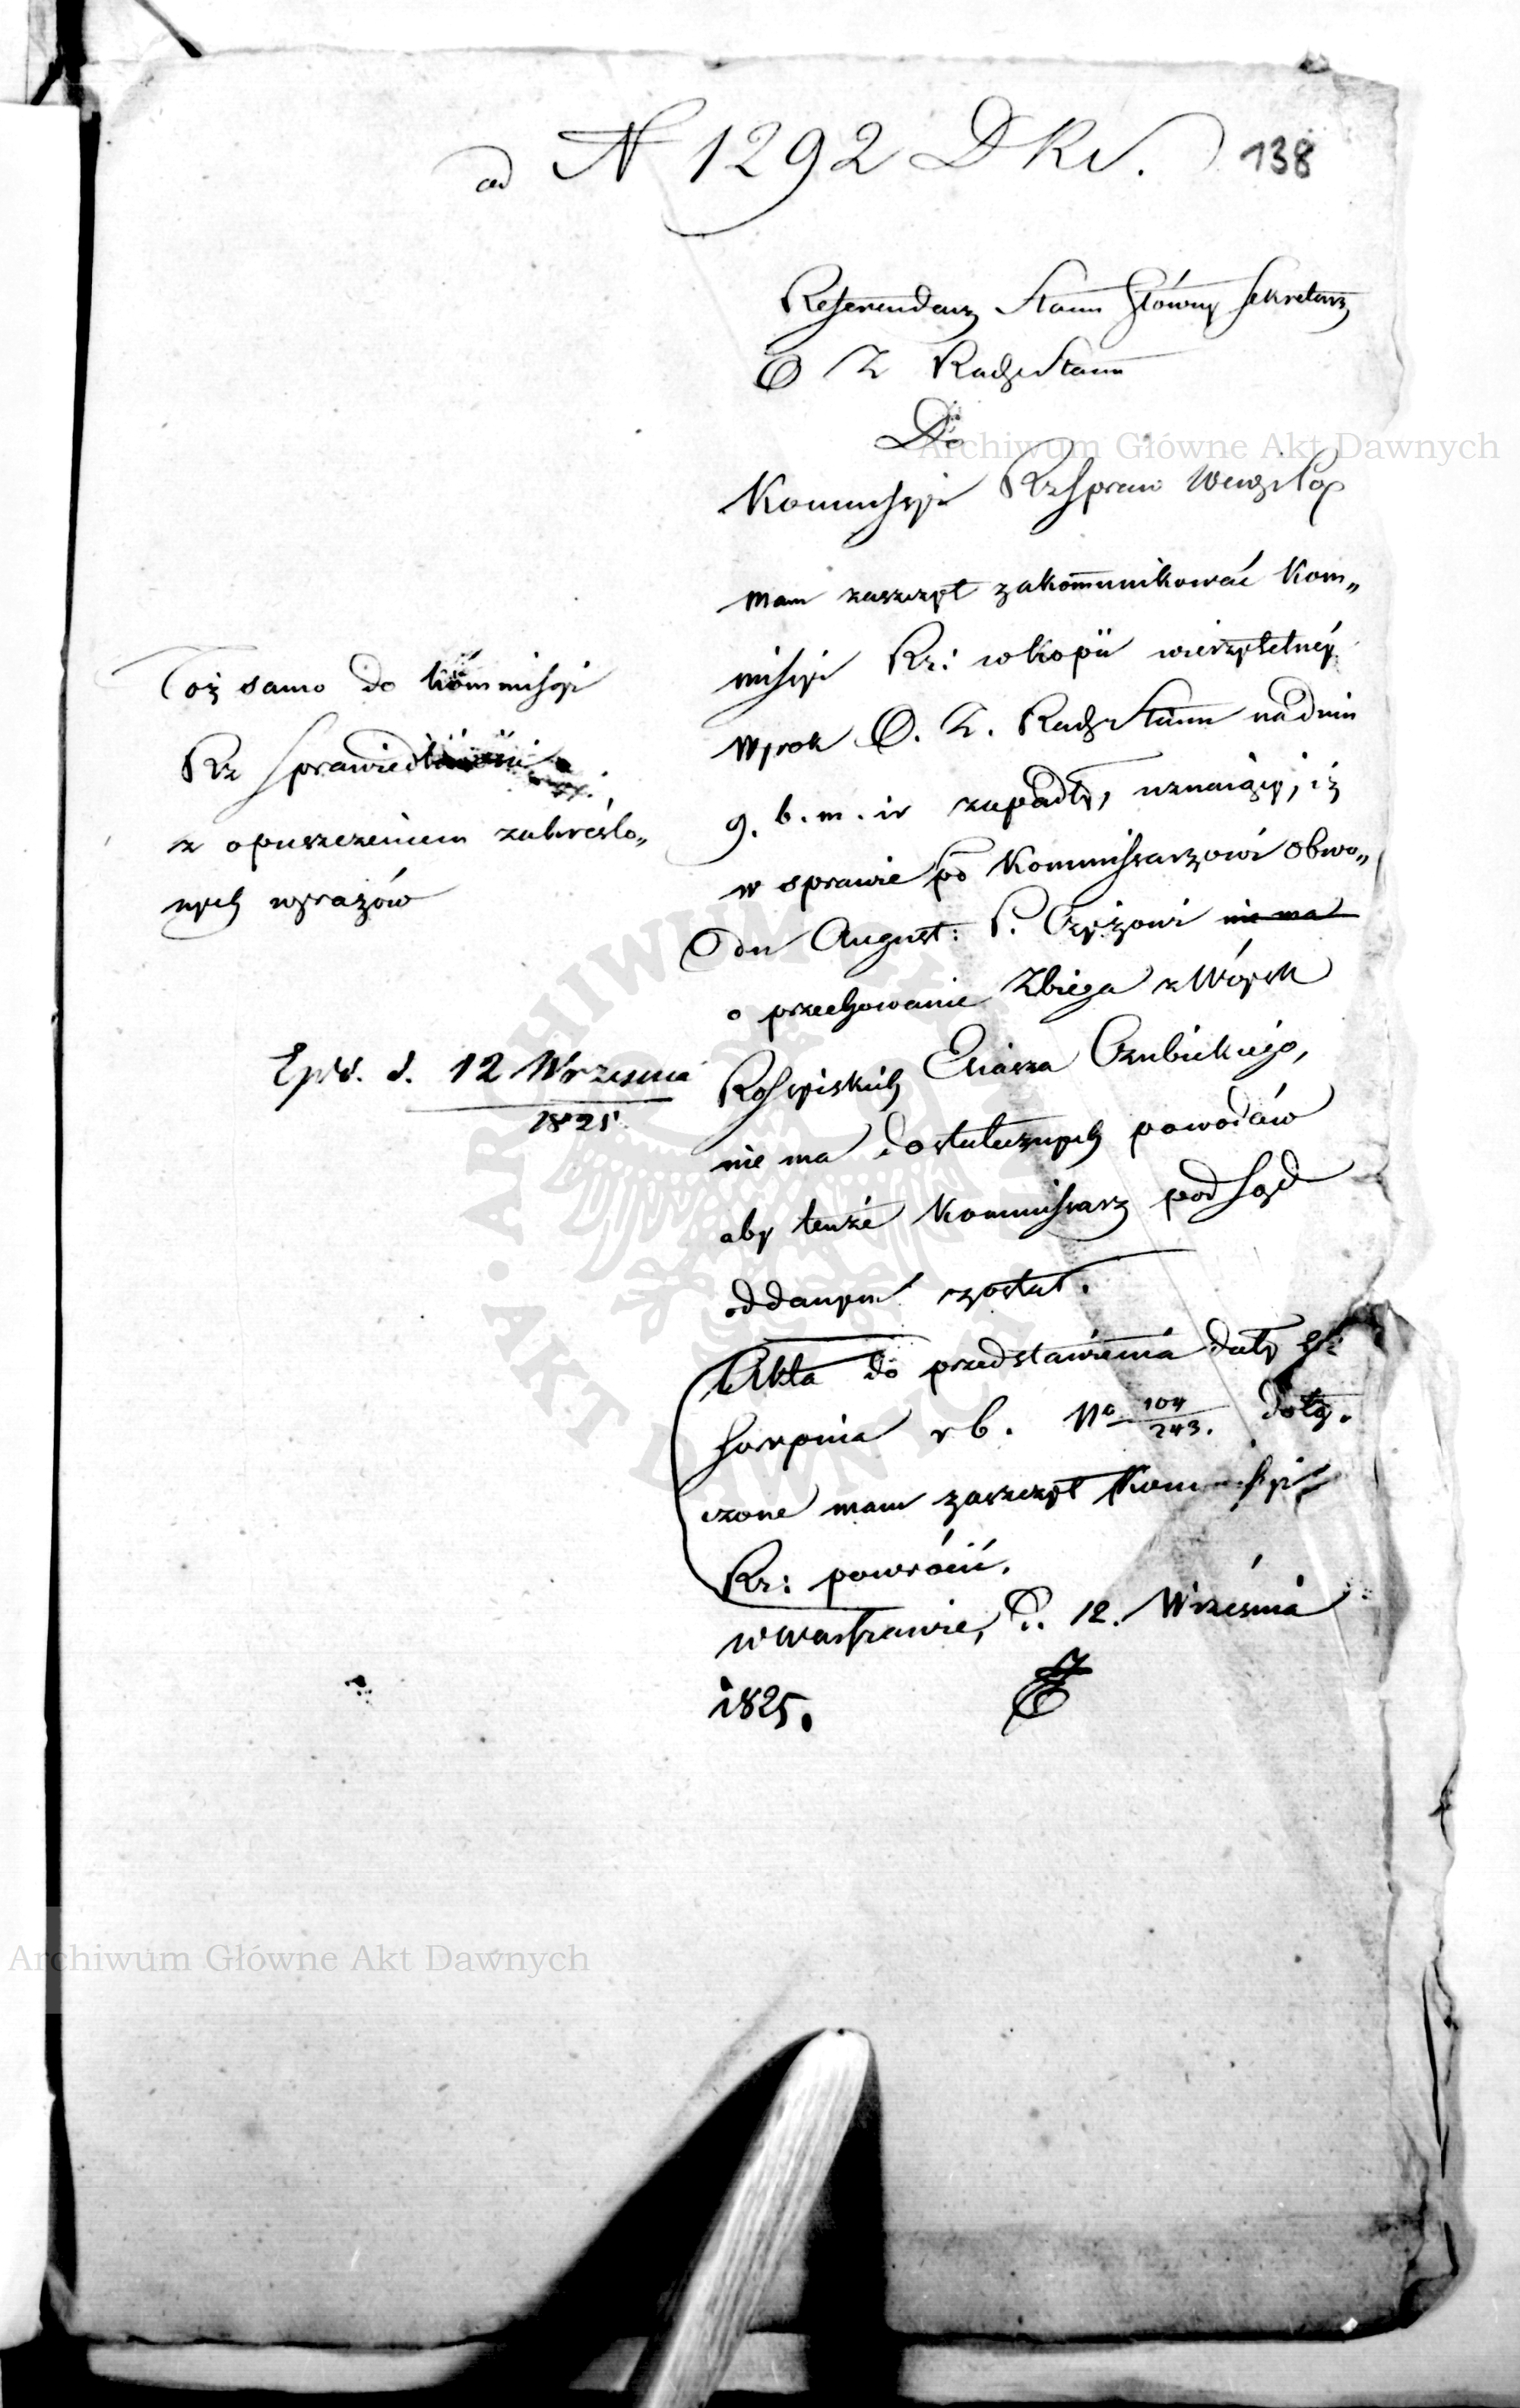 ad N 1292 DRS. 138
Referendarz Stanu Główny Sekretarz
O Z Rady Stanu
Do
Kommissyi Rz Spraw Wewn: i Pol
Toż samo do Kommissyi
Rz Sprawiedliwości
z opuszczeniem zakreślo„
nych wyrazów
Exp. d. 12 Września
1825
mam zaszczyt zakommunikować Kom„
missyi Rz: w kopii wierzytelnéy
Wyrok O. Z. Rady Stanu na dniu
9. b. m. i r zapadły, uznaiący, iż
w sprawie pko Kommissarzowi Obwo„
du August: P. Czyżowi nie ma
o przechowanie Zbiega z Woysk
Rossyiskich Eliasza Czubickiego,
nie ma dostatecznych powodów
aby tenże Kommissarz pod Sąd
oddanym został.
Akta do przedstawienia daty
Sierpnia r b. No 104/243. dołą„
czone mam zaszczyt Kommissyi
Rz: powrócić.
w Warszawie, d. 12. Września
1825.
Archiwum Główne Akt Dawnych
Archiwum Główne Akt Dawnych